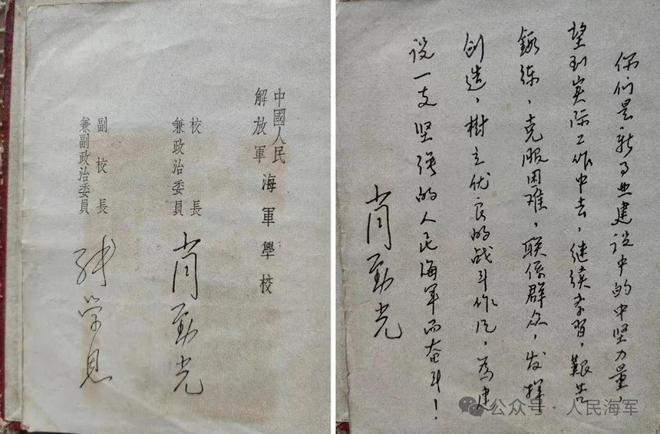 中國人民
解放軍
海軍學校
校長
兼政治委員
肖勁光
副校長
兼副政治委員
张学思
你们是新事业建设中的中坚力量，
望到实际工作中去，继续学习，艱苦
鍛練，克服困难，联係群众，发揮
创造，樹立优良的战斗作风，為建
设一支坚强的人民海軍而奋斗！
肖勁光
公众号·人民海军